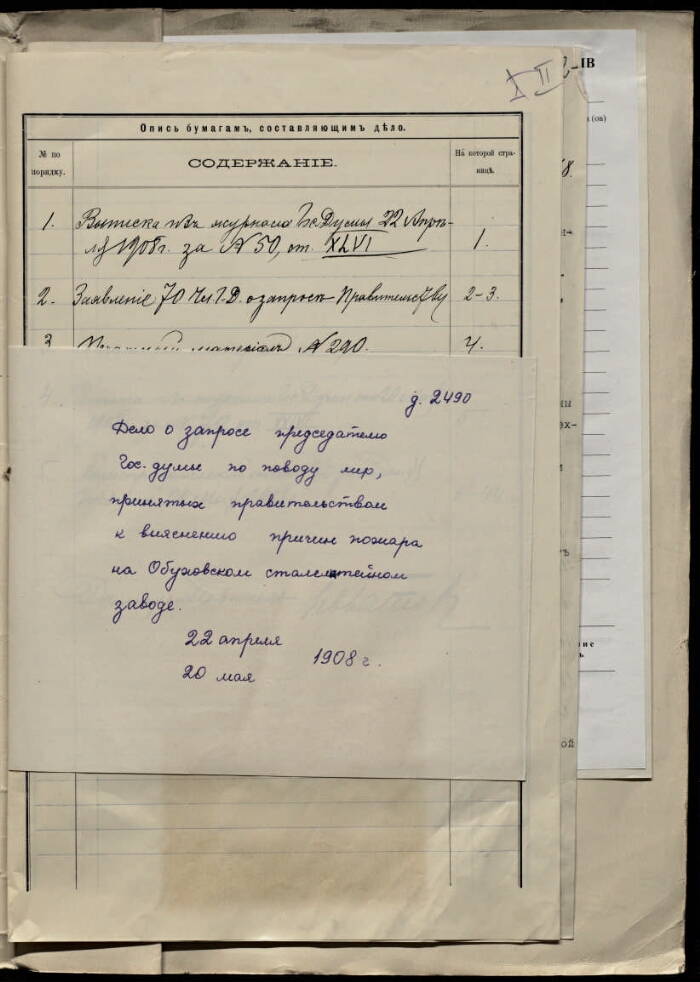 X II
Опись бумагамъ, составляющимъ дѣло.
№ по порядку.
СОДЕРЖАНІЕ.
На которой стра-
ницѣ.
1. Выписка изъ журнала Гос. Думы 22 Апрѣ-
ля 1908 г. за № 50, от. XLVI 1.
2. Заявленіе 70 Чл. Г. Д. о запросѣ Правительству 2-3.
3. матеріалъ № 290. 4.
д. 2490
Дело о запросе председателю
Гос. думы по поводу мер,
принятых правительством
к вияснению причин пожара
на Обуховском сталелитейном
заводе.
22 апреля
20 мая 1908 г.